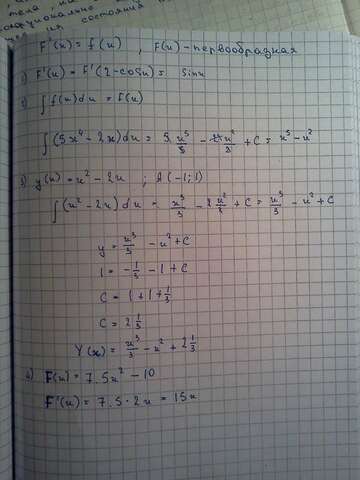 тела, на
порционально
ия состояния
F'(x) = f(x) , F(x) - первообразная
1) F'(x) = F'(2-cosx) = sinx
2) ∫f(x)dx = F(x)
∫(5x⁴ - 2x)dx = 5x⁵/5 - 2x²/2 + C = x⁵ - x²
3) y(x) = x² - 2x ; A(-1;1)
∫(x² - 2x)dx = x³/3 - 2x²/2 + C = x³/3 - x² + C
y = x³/3 - x² + C
1 = -1/3 - 1 + C
C = 1 + 1 + 1/3
C = 2 1/3
Y(x) = x³/3 - x² + 2 1/3
4) F(x) = 7.5x² - 10
F'(x) = 7.5 · 2x = 15x